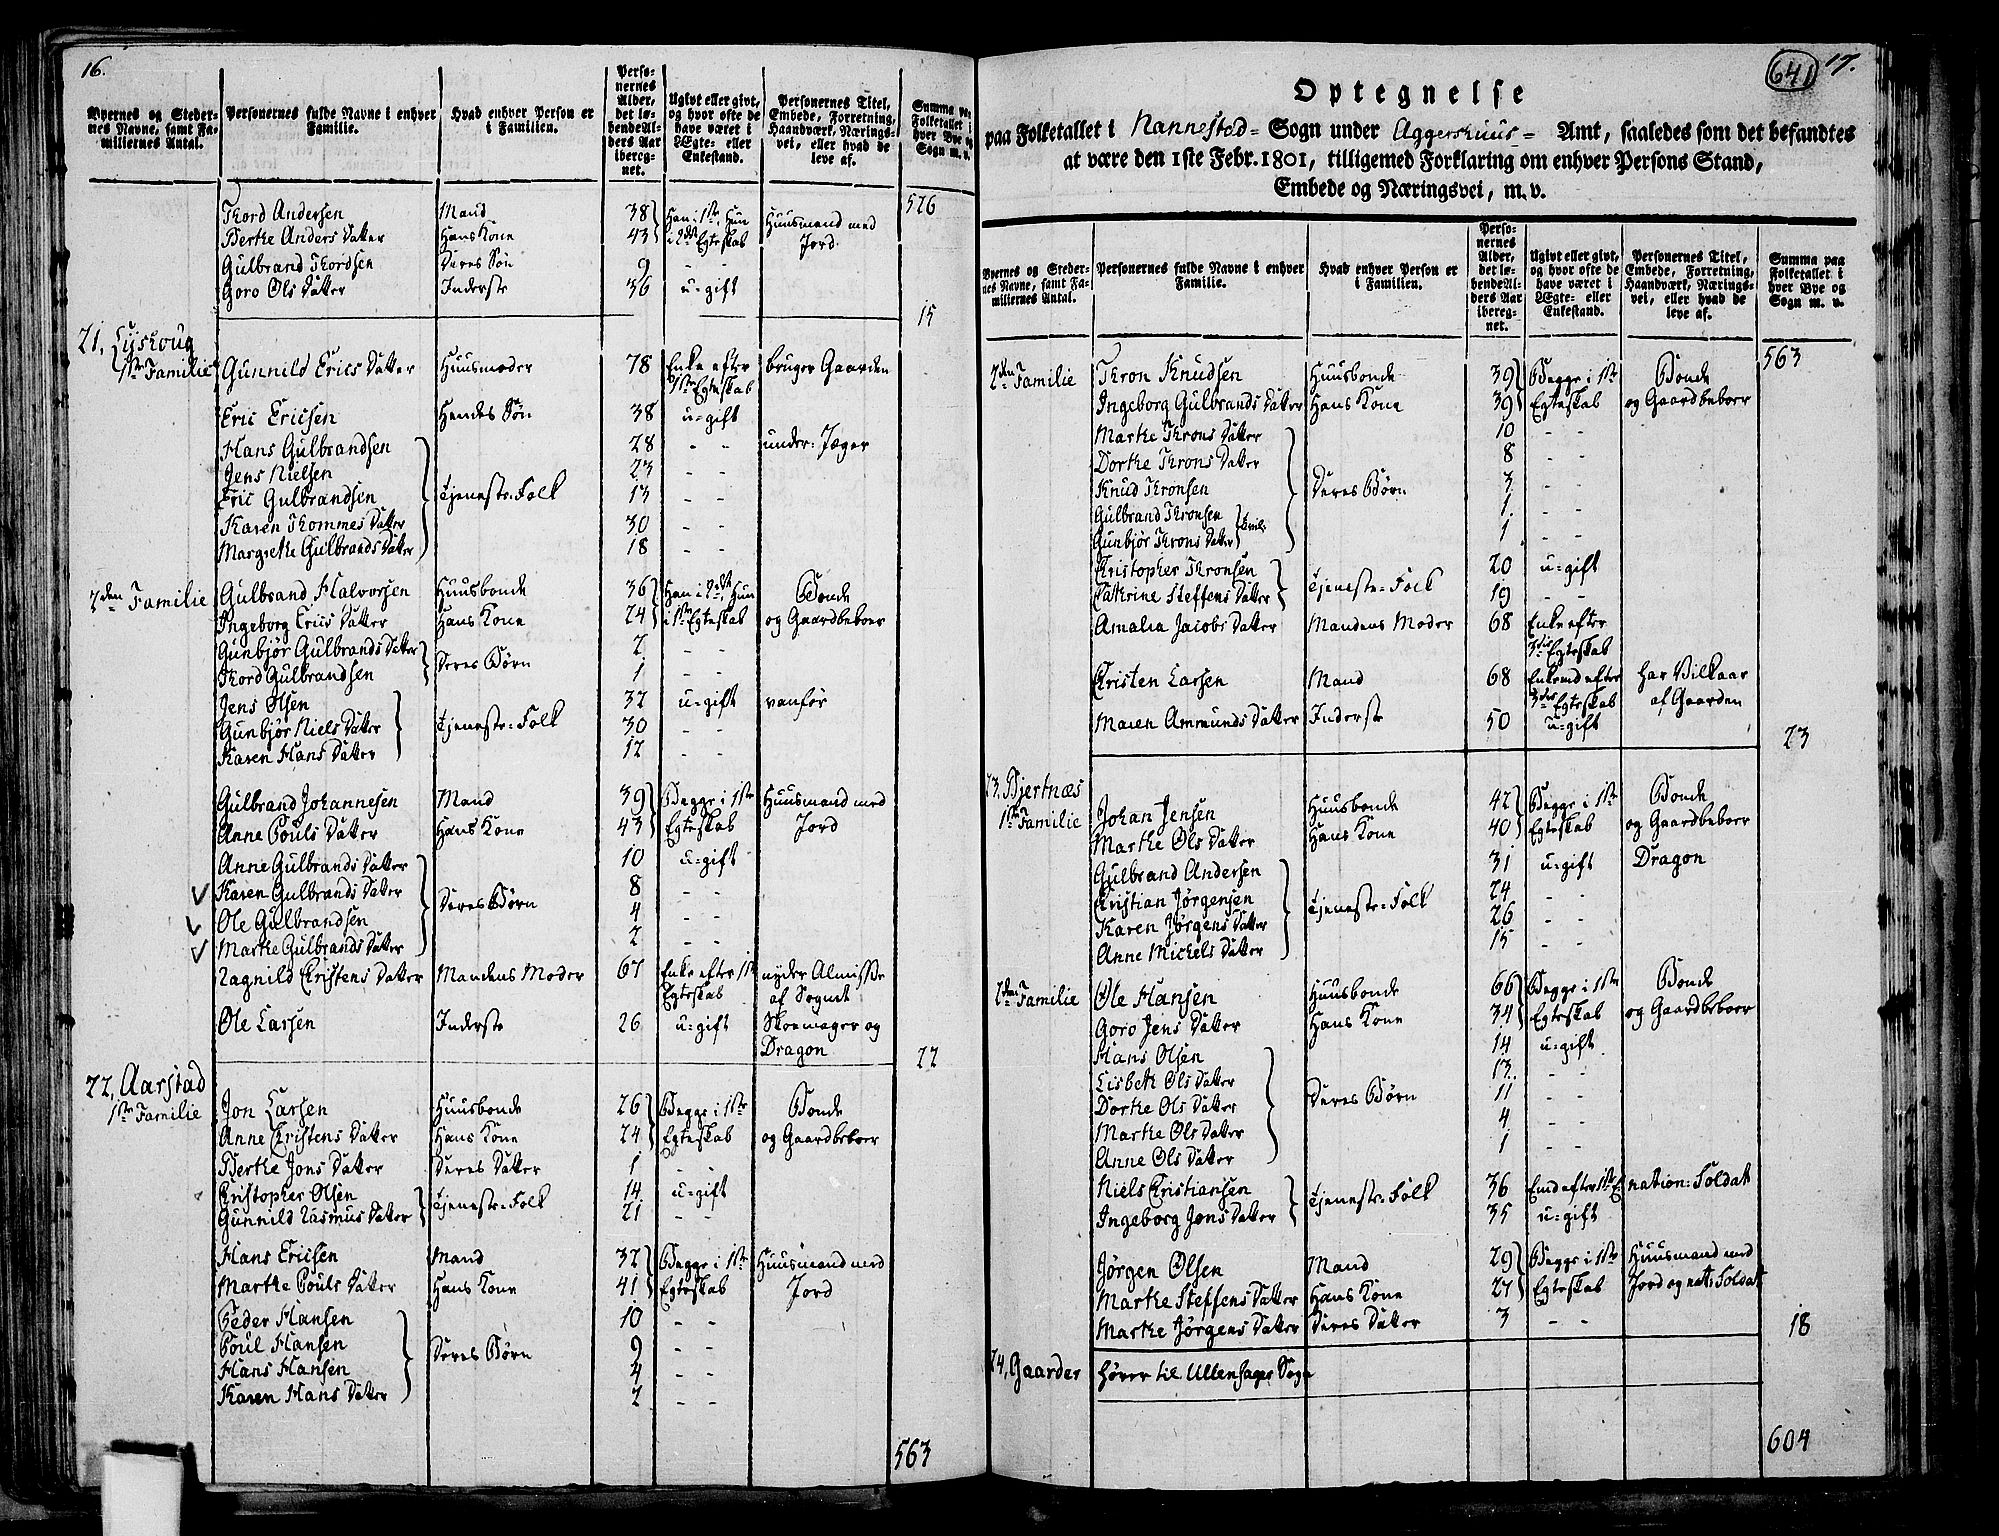 16.
Byernes og Steder-
nes Navne, samt Fa-
miliernes Antal.
Personernes fulde Navne i enhver
Familie.
Hvad enhver Person er
i Familien.
Perso-
nernes
Alder,
det lø-
bende Al-
ders Aar
iberegn-
net.
Ugivt eller givt,
og hvor ofte de
have været i
Ægte- eller
Enkestand.
Personernes Titel,
Embede, Forretning,
Haandværk, Nærings-
vei, eller hvad de
leve af.
Summa paa
Folketallet i
hver Bye og
Sogn m. v.
526
Thord Andersen Mand 38 Han i 1ste Hun Huusmand med
Berthe Anders Datter Hans Kone 43 i 2det Egteskab Jord
Gulbrand Thordsen Deres Søn 9 - -
Goro Ols Datter Inderste 36 u-gift
15
21, Lyshoug
1ste Familie Gunnild Erics Datter Huusmoder 78 Enke efter bruger Gaarden
1ste Egteskab
Eric Ericsen Hendes Søn 38 u-gift
Hans Gulbrandsen 28 - - under-Jæger
Jens Nielsen 23 - -
Eric Gulbrandsen Tjeneste-Folk 13 - -
Karen Thommes Datter 30 - -
Margrethe Gulbrands Datter 18 - -
2den Familie Gulbrand Halvorsen Huusbonde 36 Han i 2det, Hun Bonde
Ingeborg Erics Datter Hans Kone 24 i 1ste Egteskab og Gaardbeboer
Gunbjør Gulbrands Datter Deres Børn 2 - -
Thord Gulbrandsen 1 - -
Jens Olsen 32 u-gift vanfør
Gunbjør Niels Datter Tjeneste-Folk 30 - -
Karen Hans Datter 12 - -
Gulbrand Johannesen Mand 39 Begge i 1ste Huusmand med
Anne Pouls Datter Hans Kone 43 Egteskab Jord
Anne Gulbrands Datter 10 u-gift
Karen Gulbrands Datter Deres Børn 8 - -
Ole Gulbrandsen 4 - -
Marthe Gulbrands Datter 2 - -
Ragnild Christens Datter Mandens Moder 67 Enke efter 1ste nyder Almisse
Egteskab af Sognet
Ole Larsen Inderste 26 u-gift Skoemager og
Dragon
22
22, Aarstad
1ste Familie Jon Larsen Huusbonde 26 Begge i 1ste Bonde
Anne Christens Datter Hans Kone 24 Egteskab og Gaardbeboer
Berthe Jons Datter Deres Datter 1 - -
Christopher Olsen Tjeneste-Folk 14 u-gift
Gunnild Rasmus Datter 21 - -
Hans Ericsen Mand 32 Begge i 1ste Huusmand med
Marthe Pouls Datter Hans Kone 41 Egteskab Jord
Peder Hansen 10 - -
Poul Hansen Deres Børn 9 - -
Hans Hansen 4 - -
Karen Hans Datter 2 - -
563
641 17.
Optegnelse
paa Folketallet i Nannestad- Sogn under Aggershuus- Amt, saaledes som det befandtes
at være den 1ste Febr. 1801, tilligemed Forklaring om enhver Persons Stand,
Embede og Næringsvei, m. v.
Byernes og Steder-
nes Navne, samt Fa-
miliernes Antal.
Personernes fulde Navne i enhver
Familie.
Hvad enhver Person er
i Familien.
Perso-
nernes
Alder,
det lø-
bende Al-
ders Aar
iberegn-
net.
Ugivt eller givt,
og hvor ofte de
have været i
Ægte- eller
Enkestand.
Personernes Titel,
Embede, Forretning,
Haandværk, Nærings-
vei, eller hvad de
leve af.
Summa paa
Folketallet i
hver Bye og
Sogn m. v.
563
2den Familie Thron Knudsen Huusbonde 39 Begge i 1ste Bonde
Ingeborg Gulbrands Datter Hans Kone 39 Egteskab og Gaardbeboer
Marthe Throns Datter 10 - -
Dorthe Throns Datter 8 - -
Knud Thronsen Deres Børn 3 - -
Gulbrand Thronsen 1 - -
Gunbjør Throns Datter 1 - -
Christopher Thronsen Tjeneste-Folk 20 u-gift
Cathrine Steffens Datter 19 - -
Amalia Jacobs Datter Mandens Moder 68 Enke efter
3die Egteskab
Christen Larsen Mand 68 Enkemd efter har Vilkaar
3die Egteskab af Gaarden
Maren Ammunds Datter Inderste 50 u-gift
23
23, Bjertnæs
1ste Familie Johan Jensen Huusbonde 42 Begge i 1ste Bonde
Marthe Ols Datter Hans Kone 40 Egteskab og Gaardbeboer
Gulbrand Andersen 31 u-gift Dragon
Christian Jørgensen Tjeneste-Folk 24 - -
Karen Jørgens Datter 26 - -
Anne Michels Datter 15 - -
2den Familie Ole Hansen Huusbonde 66 Begge i 1ste Bonde
Goro Jens Datter Hans Kone 34 Egteskab og Gaardbeboer
Hans Olsen 14 u-gift
Lisbeth Ols Datter 13 - -
Dorthe Ols Datter Deres Børn 11 - -
Marthe Ols Datter 4 - -
Anne Ols Datter 1 - -
Niels Christiansen Tjeneste-Folk 36 Emd efter 1ste E. nation: Soldat
Ingeborg Jons Datter 35 u-gift
Jørgen Olsen Mand 29 Begge i 1ste Huusmand med
Marthe Steffens Datter Hans Kone 27 Egteskab Jord og nat: Soldat
Marthe Jørgens Datter Deres Datter 3 - -
18
24, Gaarder hører til Ullensager Sogn
604